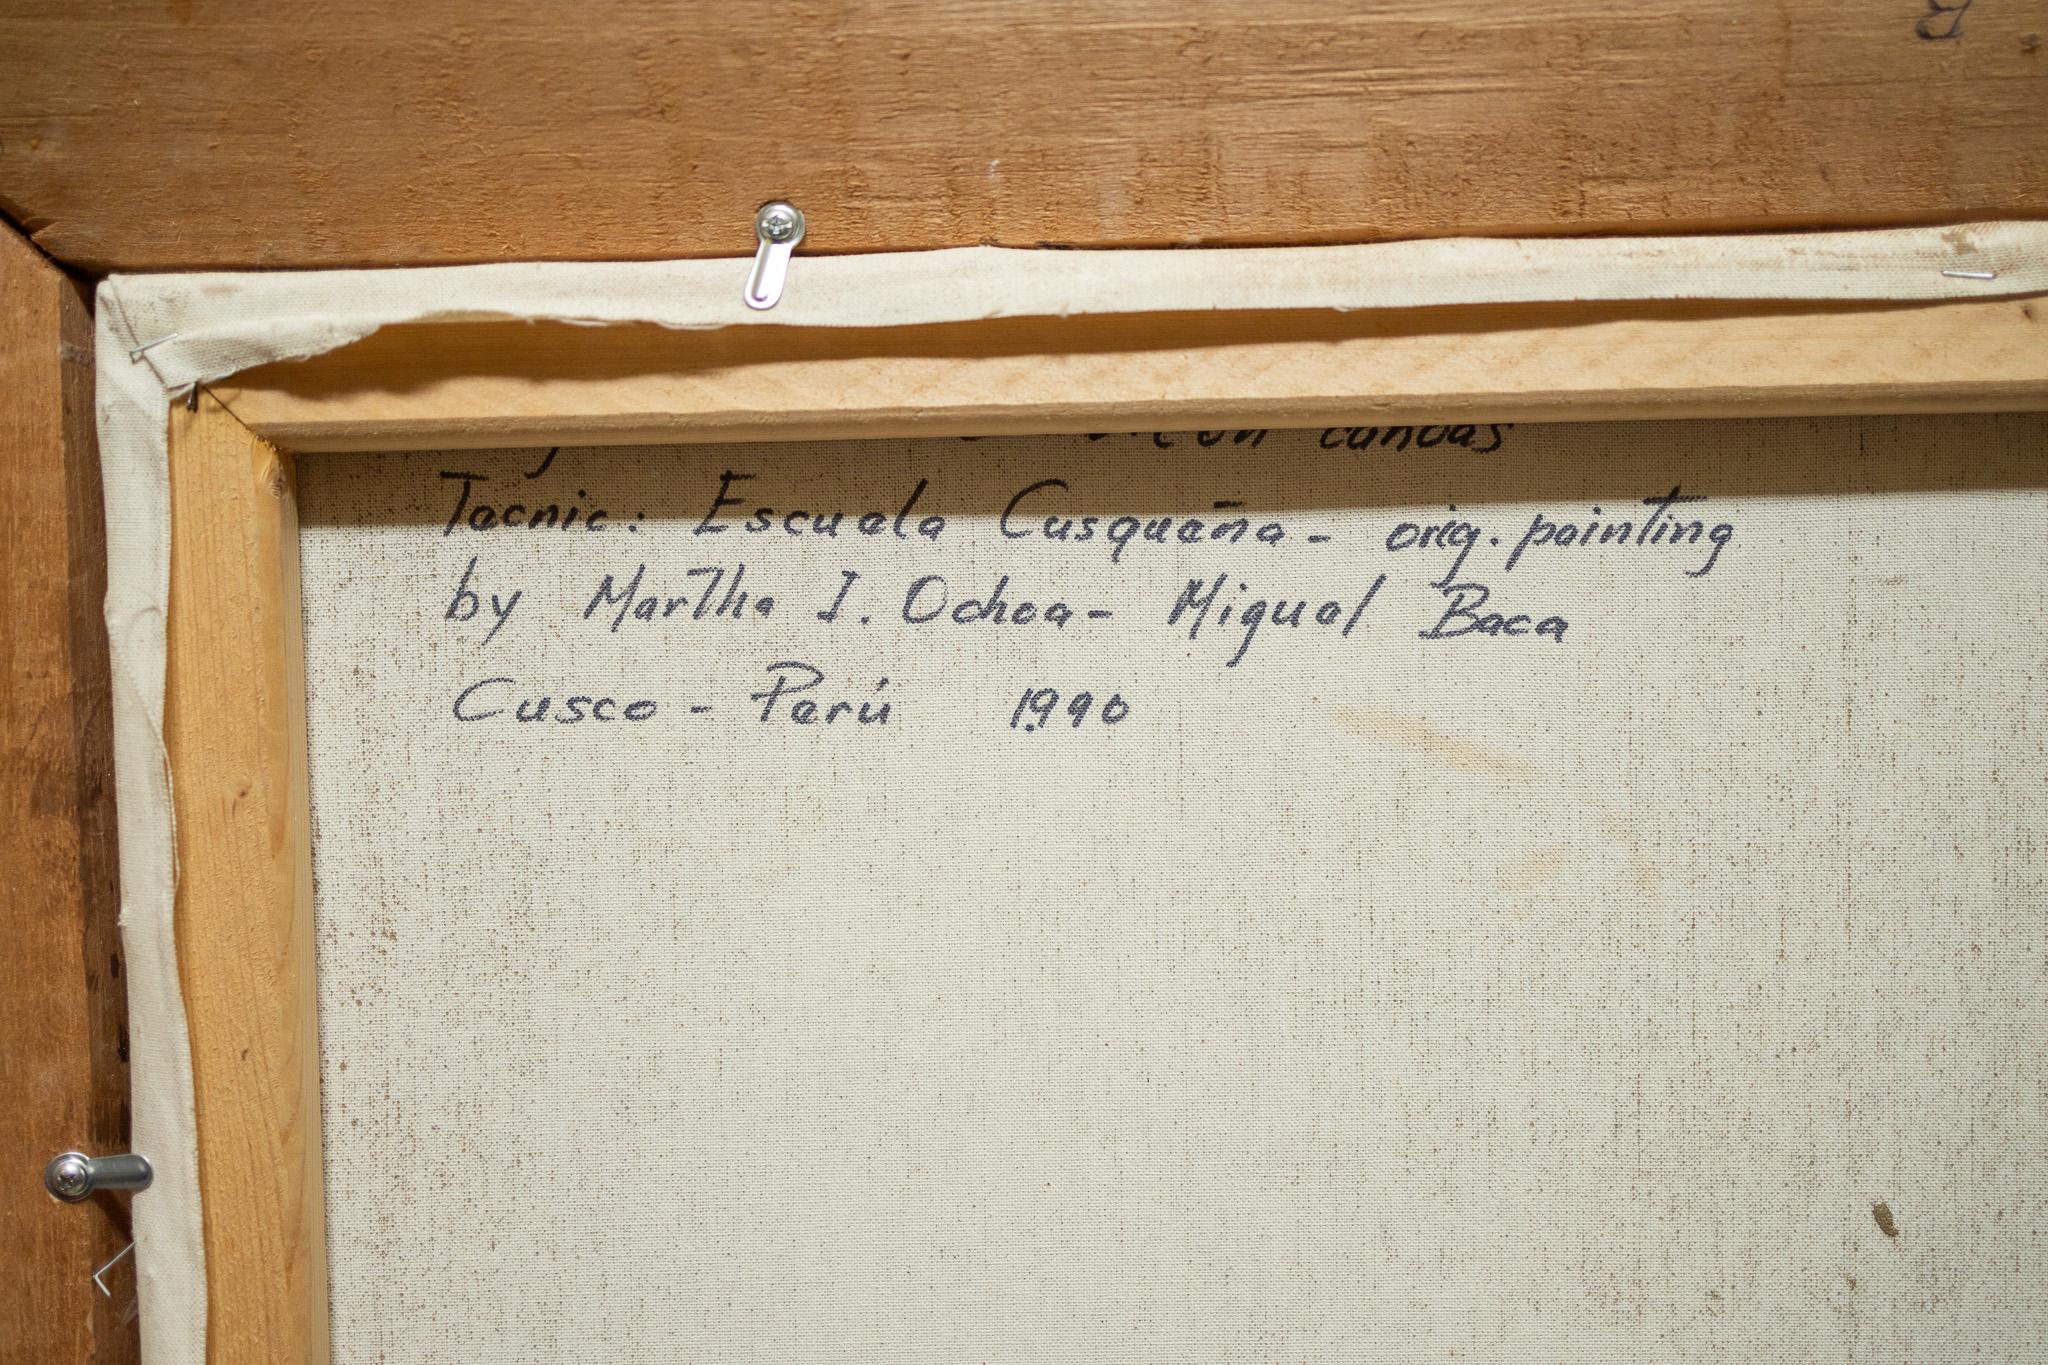 on canvas
Tecnic: Escuela Cusqueña - orig. painting
by Martha I. Ochoa - Miguel Baca
Cusco - Perú 1990